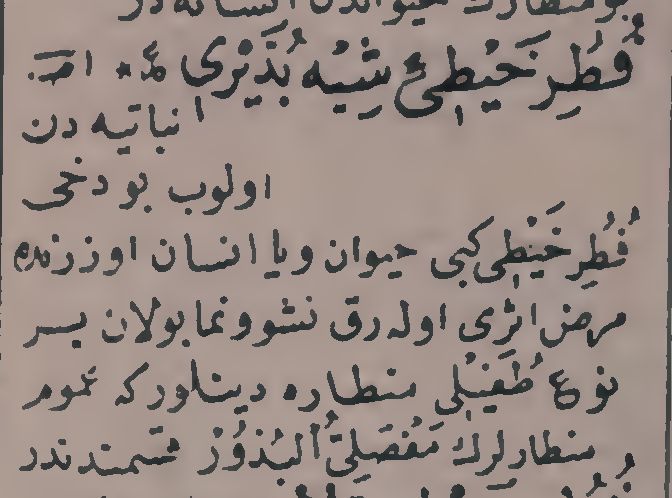 فُطُرِ خَيْطِیٴِ شِبْهِ بُذَيْرِی ا مـ.
انباتيه دن
اولوب بو دخی
فُطُرِ خَيْطِی كبی حيوان ويا انسان اوزرنده
مرض اثری اوله رق نشو و نما بولان بر
نوع طُفَيْلِی منطاره دينلور كه عموم
منطارلرك مُفَصَلِیَّةُ الْبُذُوْرْ قسمندندر